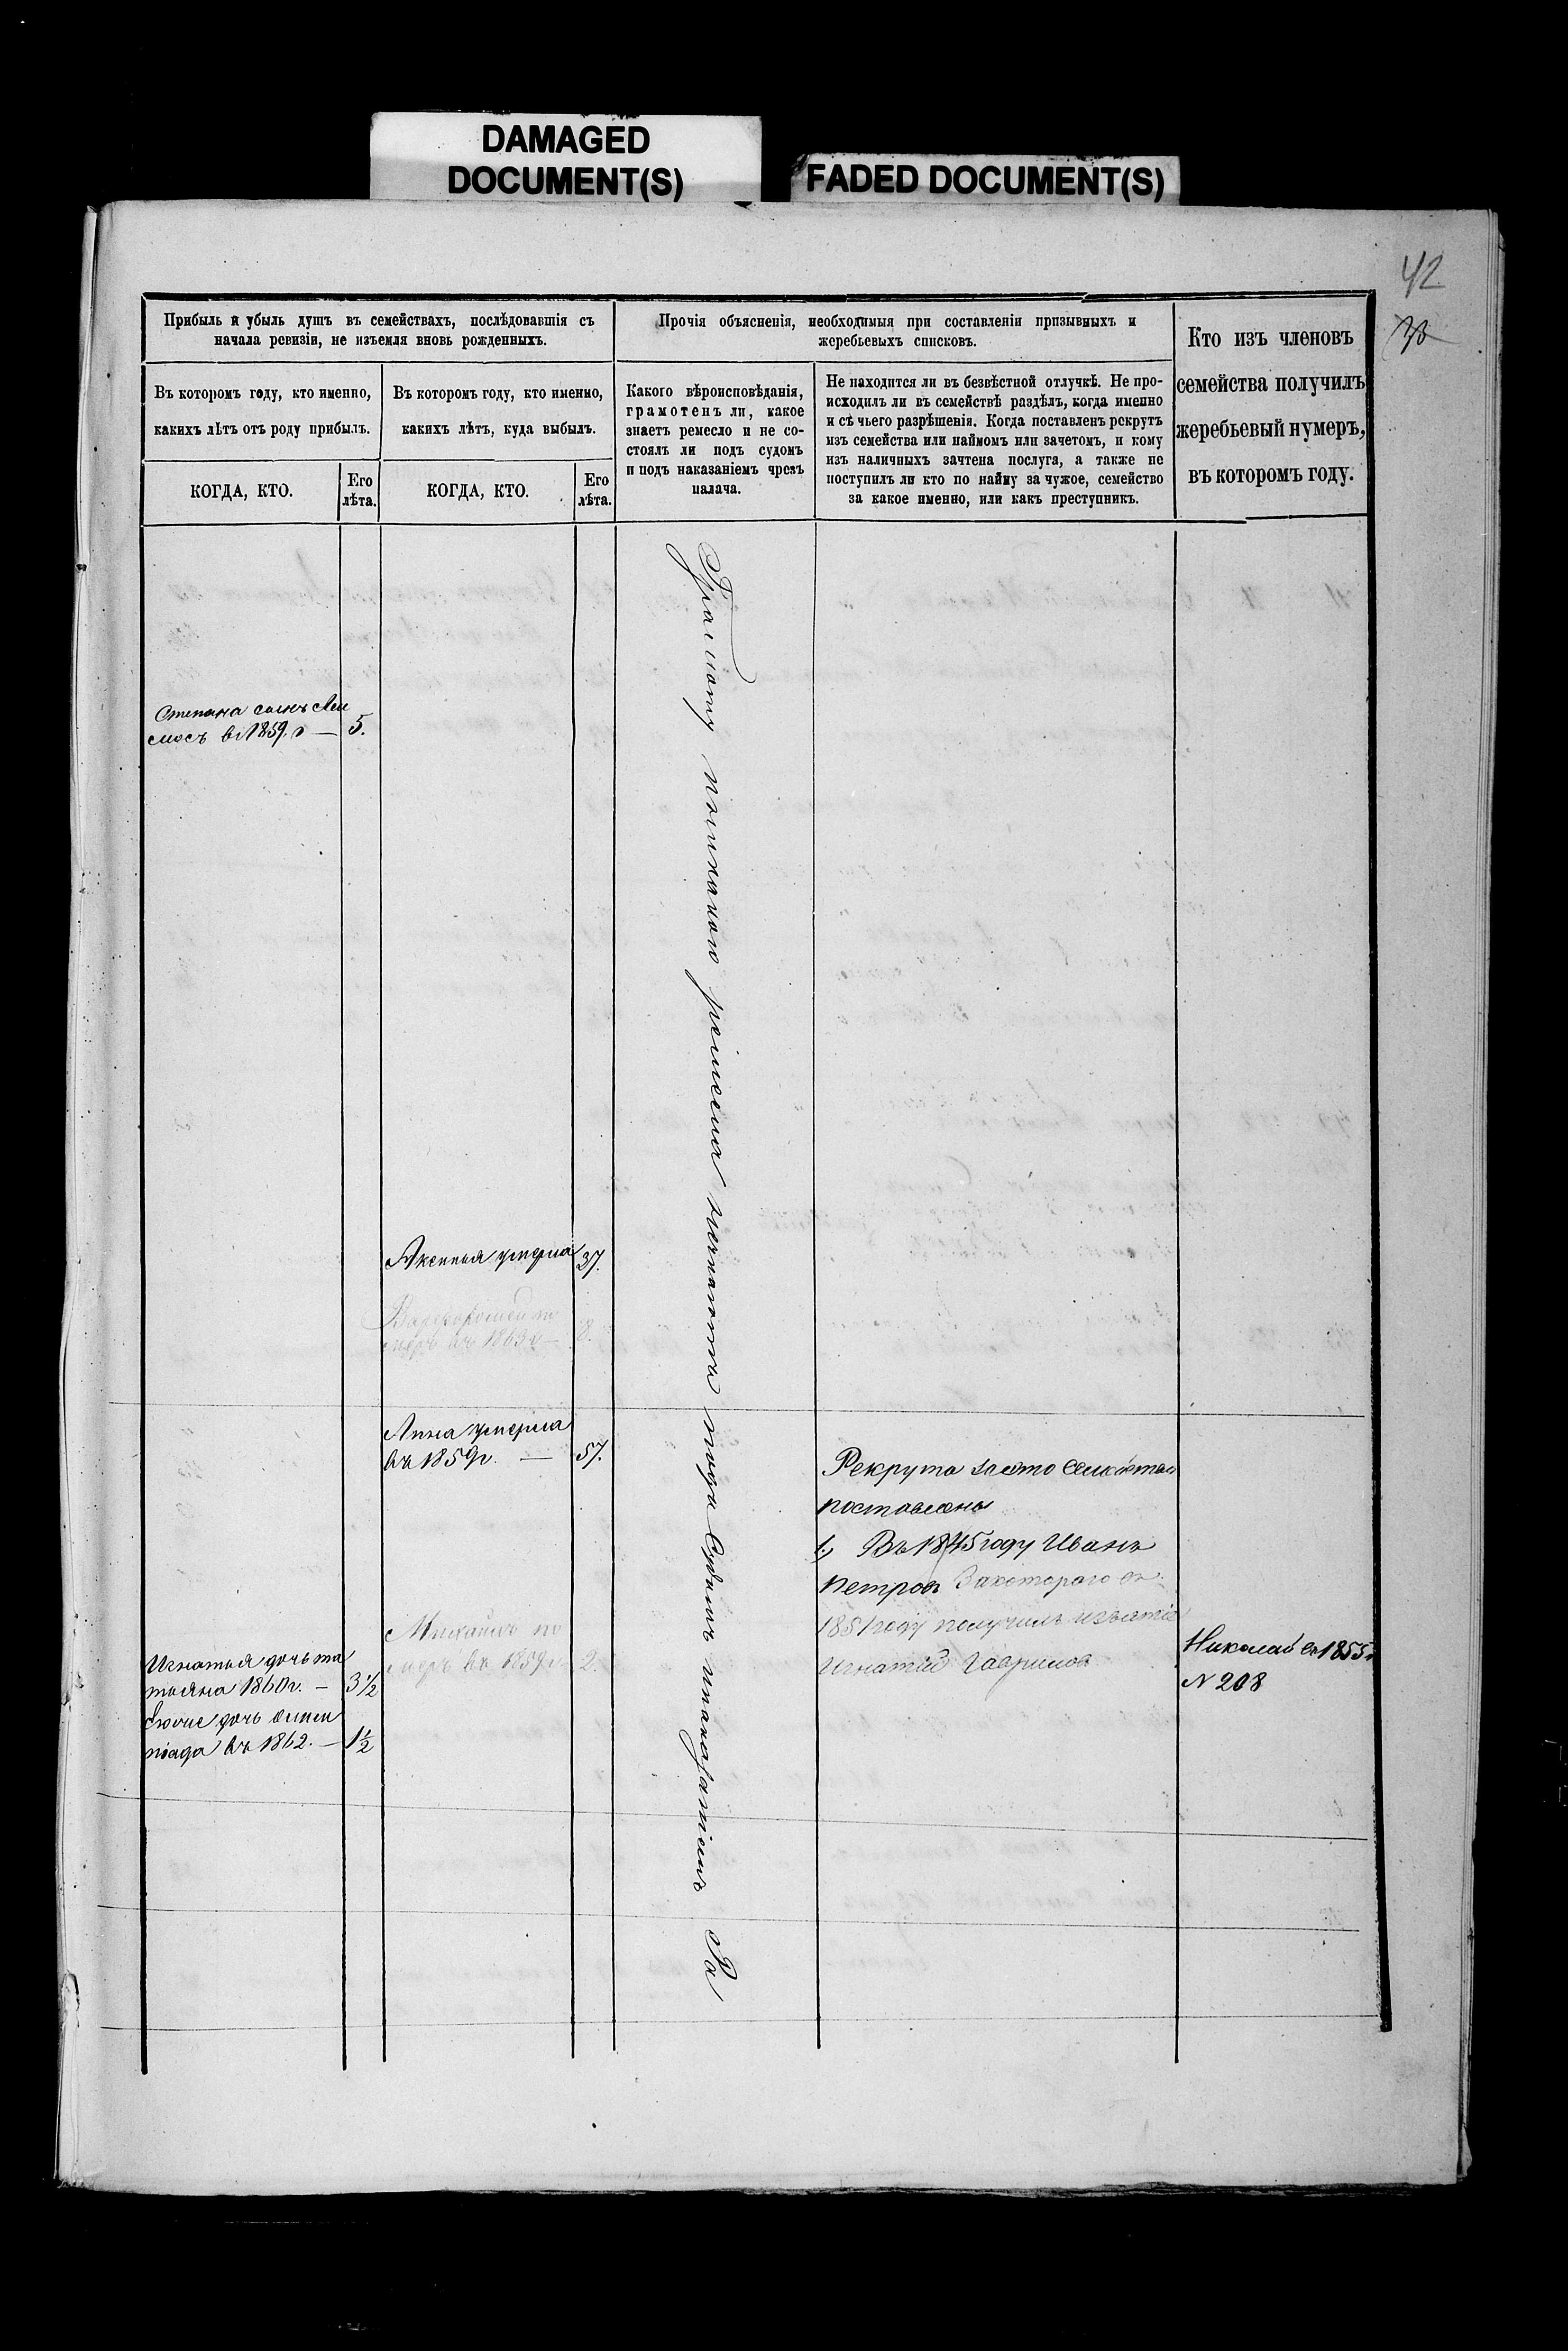 DAMAGED
DOCUMENT(S)
FADED DOCUMENT(S)
42
Прибыль и убыль душъ въ семействахъ, послѣдовавшія съ
начала ревизіи, не изъемля вновь рожденныхъ.
Въ которомъ году, кто именно,
какихъ лѣтъ отъ роду прибылъ.
КОГДА, КТО.
Его
лѣта.
Въ которомъ году, кто именно,
какихъ лѣтъ, куда выбылъ.
КОГДА, КТО.
Его
лѣта.
Прочія объясненія, необходимыя при составленіи призывныхъ и
жеребьевыхъ списковъ.
Какого вѣроисповѣданія,
грамотенъ ли, какое
знаетъ ремесло и не со-
стоялъ ли подъ судомъ
и подъ наказаніемъ чрезъ
палача.
Не находится ли въ безвѣстной отлучкѣ. Не про-
исходилъ ли въ семействѣ раздѣлъ, когда именно
и съ чьего разрѣшенія. Когда поставленъ рекрутъ
изъ семейства или наймомъ или зачетомъ, и кому
изъ наличныхъ зачтена послуга, а также не
поступилъ ли кто по найму за чужое, семейство
за какое именно, или какъ преступникъ.
Кто изъ членовъ
семейства получилъ
жеребьевый нумеръ,
въ которомъ году.
Степана сынъ
въ 1859. г — 5.
Аксинья умерла 37.
меръ въ 1863 г — 8.
Анна умерла
въ 1859г. — 57.
Михаилъ по
меръ въ 1859 г 2.
Игнатья дочь та
тьяна 1860г. — 3 1/2
дочь олим
піада въ 1862. — 1 1/2
Грамоту никакого ремесла подъ Судомъ инаказаніемъ
Рекрута
поставлены
1., Въ 1845 году Иванъ
Петровъ Закотораго въ
1851 году получилъ изъятіе
Игнатій Гавриловъ
Николай въ 1855 г
N 208